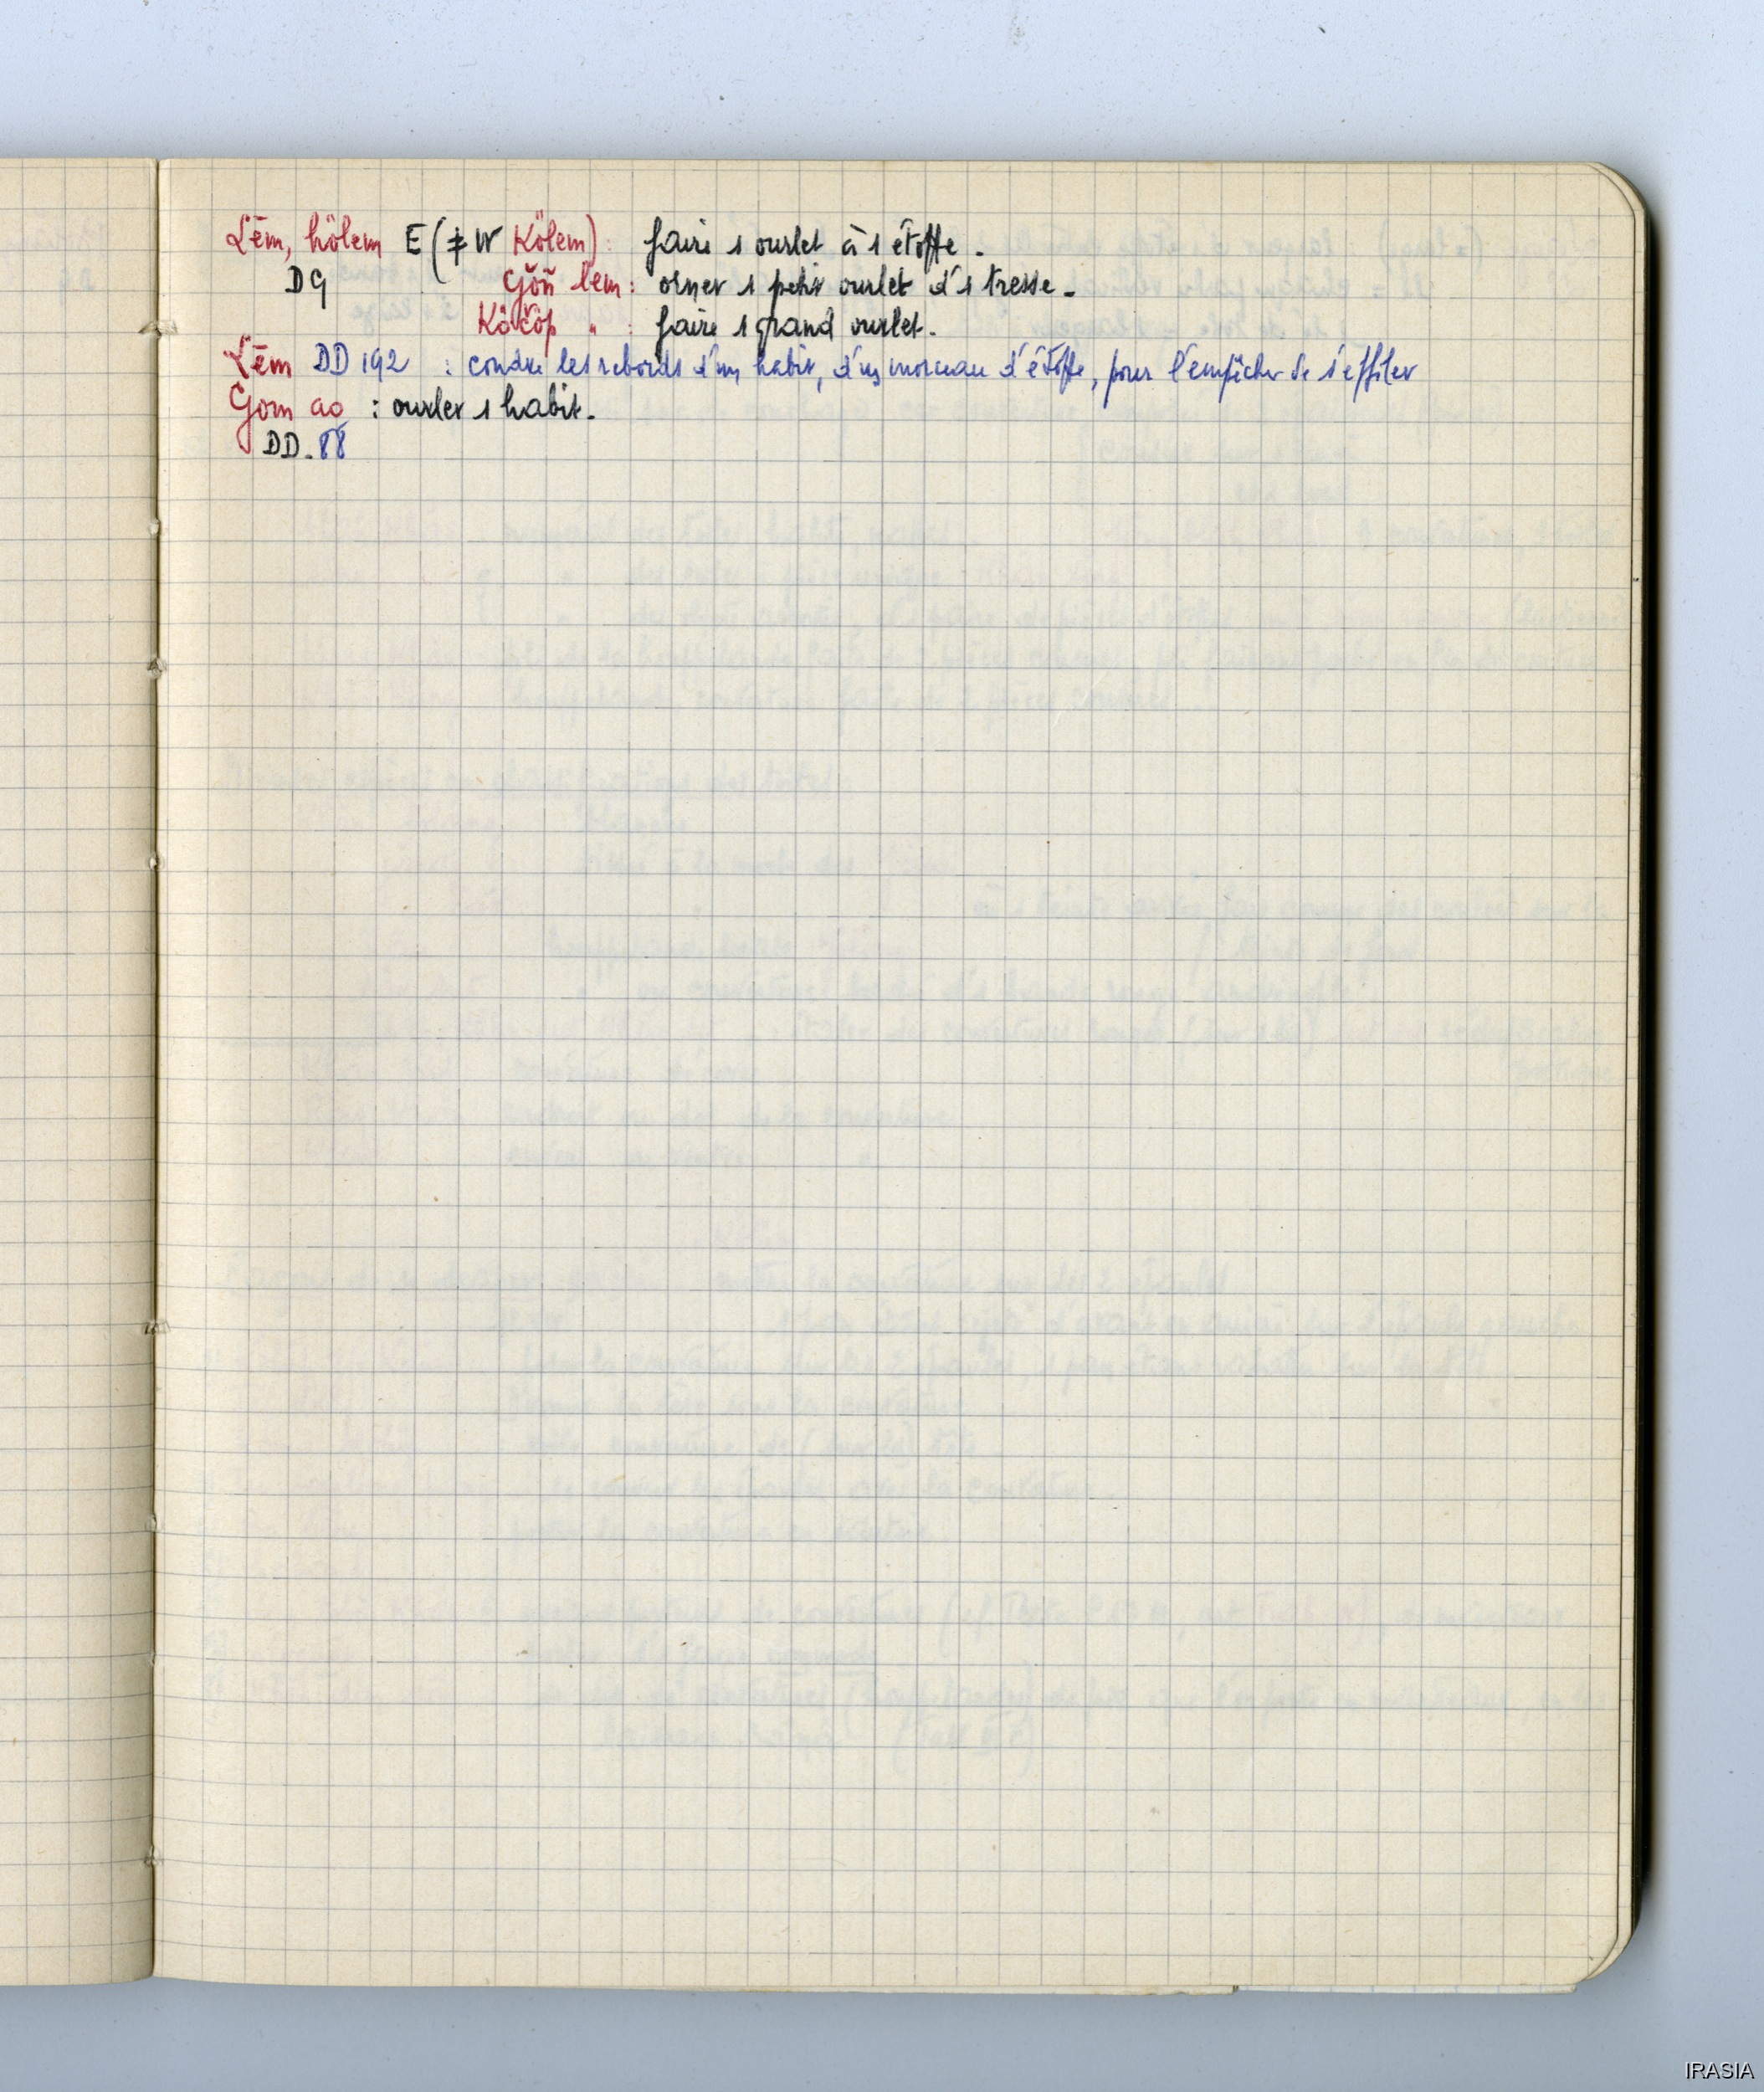 Lĕm, hölem E (≠ W Kölem) : faire 1 ourlet à 1 étoffe.
DG Gŏñ lem : orner 1 petit ourlet d'1 tresse.
Köčŏp " : faire 1 grand ourlet.
Lĕm DD 192 : coudre les rebords d'un habit, d'un morceau d'étoffe, pour l'empêcher de s'effiler
Gom ao : ourler 1 habit.
DD. 88
IRASIA